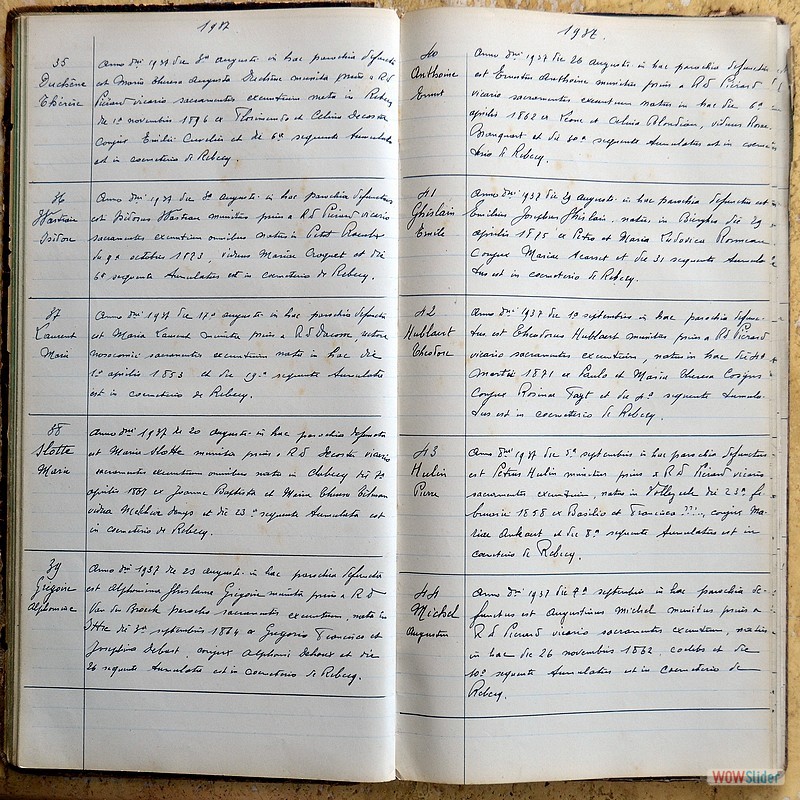 1937
35
Duchêne
Thérèse
Anno dni 1937 die 3a augusti in hac parochia defuncta
est Maria Theresa Augusta Duchêne munita prius a R d
Piérard vicario sacramentis exeuntium nata in Rebecq
die 1a novembris 1876 ex Florimundo et Celina Decoster
conjux Emilii et die 6a sequente tumulata
est in coemeterio de Rebecq.
36
Isidore
Anno dni 1937 die 3a augusti in hac parochia defunctus
est Isidorus munitus prius a R d Piérard vicario
sacramentis exeuntium omnibus natus in Petit Roeulx
die 9a octobris 1873, viduus Mariae Croquet et die
6a sequente tumulatus est in coemeterio de Rebecq.
37
Laurent
Marie
Anno dni 1937 die 17a augusti in hac parochia defuncta
est Maria Laurent munita prius a R d
nosocomii sacramentis exeuntium nata in hac die
1a aprilis 1853 et die 19a sequente tumulata
est in coemeterio de Rebecq.
38
Slotte
Marie
Anno dni 1937 die 20 augusti in hac parochia defuncta
est Maria Slotte munita prius a R d vicario
sacramentis exeuntium omnibus nata in Clabecq die
aprilis 1861 ex Joanne Baptista et Maria Theresa
vidua et die 23a sequente tumulata est
in coemeterio de Rebecq.
39
Grégoire
Alphonsine
Anno dni 1937 die 23 augusti in hac parochia defuncta
est Alphonsina Ghislaine Grégoire munita prius a R d
Van den Broeck parocho sacramentis exeuntium, nata in
Ittre die 3a septembris 1874 ex Gregorio Francisco et
Josephina Debast, conjux Alphonsi Dehoux et die
26 sequente tumulata est in coemeterio de Rebecq.
1937.
40
Anthoine
Ernest
Anno dni 1937 die 26 augusti in hac parochia defunctus
est Ernestus Anthoine munitus prius a R d Piérard
vicario sacramentis exeuntium natus in hac die 6a
aprilis 1862 ex et Celina Blondiau, viduus Rosae
et die 30a sequente tumulatus est in coeme-
terio de Rebecq.
41
Ghislain
Emile
Anno dni 1937 die 29 augusti in hac parochia defunctus est
Emilius Josephus Ghislain, natus in Bierghes die 29
aprilis 1875 ex Petro et Maria Ludovica
conjux Mariae et die 31 sequente tumula-
tus est in coemeterio de Rebecq.
42
Hublaert
Théodore
Anno dni 1937 die 1a septembris in hac parochia defunc-
tus est Theodorus Hublaert munitus prius a R d Piérard
vicario sacramentis exeuntium, natus in hac die
martii 1871 ex Paulo et Maria Theresa
conjux Rosinae et die 4a sequente tumula-
tus est in coemeterio de Rebecq.
43
Hulin
Pierre
Anno dni 1937 die 5a septembris in hac parochia defunctus
est Petrus Hulin munitus prius a R d Piérard vicario
sacramentis exeuntium, natus in Vollezeele die 23a fe-
bruarii 1858 ex Basilio et Francisca ???..., conjux Ma-
riae et die 8a sequente tumulatus est in
coemeterio de Rebecq.
44
Michel
Augustin
Anno dni 1937 die septembris in hac parochia de-
functus est Augustinus Michel munitus prius a
R d Piérard vicario sacramentis exeuntium, natus
in hac die 26 novembris 1862, caelebs et die
10a sequente tumulatus est in coemeterio de
Rebecq.
WOWSlider